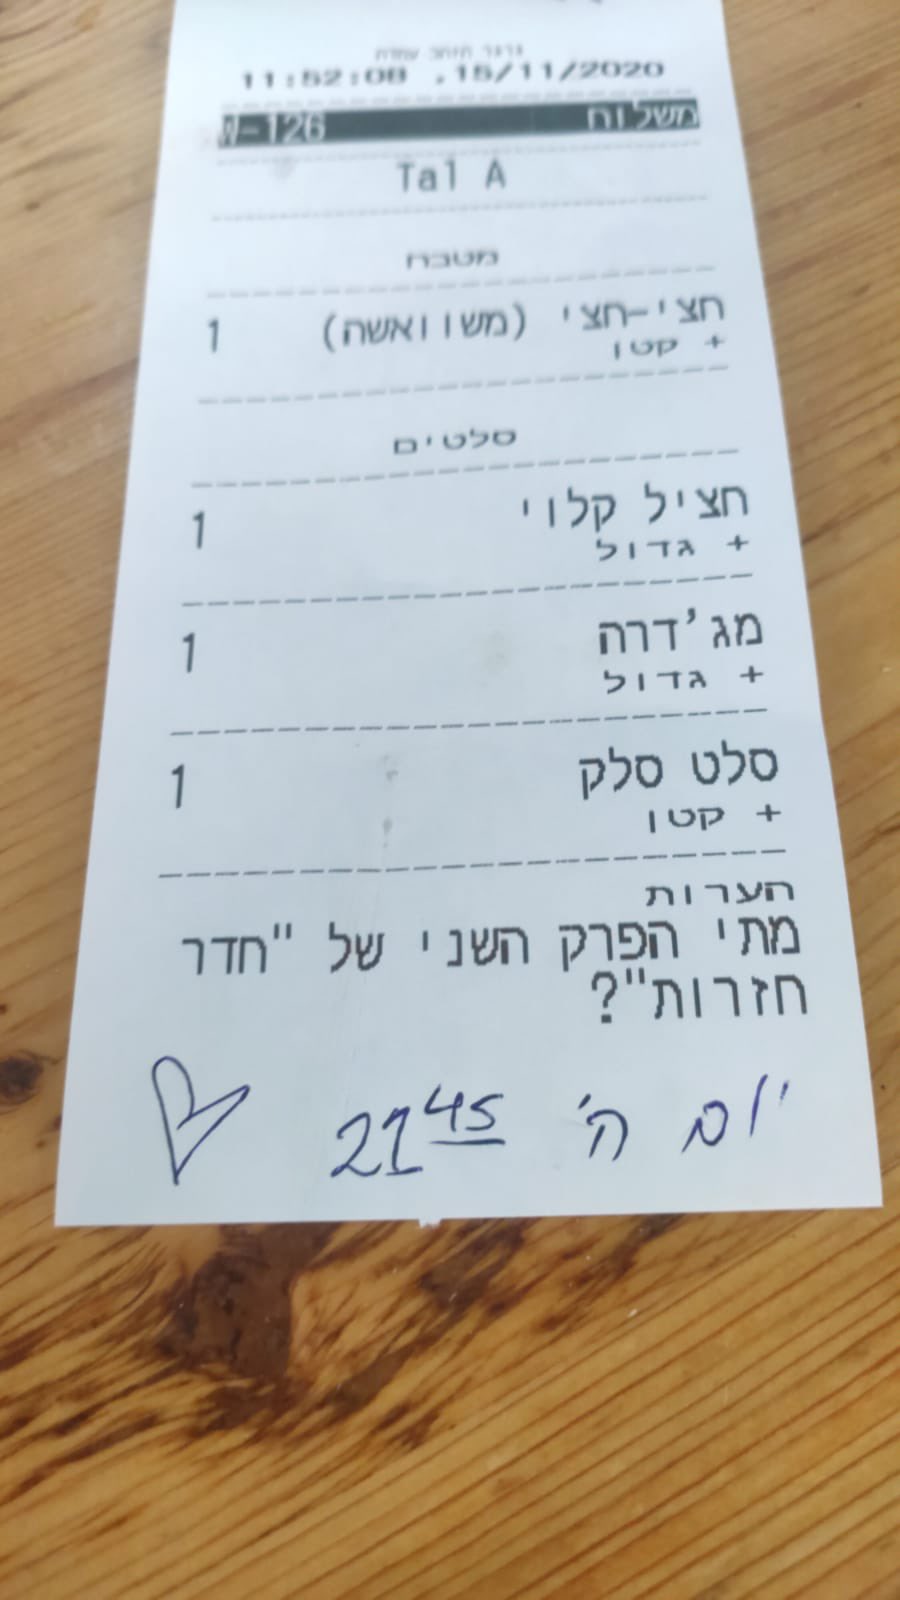 גרגר הזהב עמדת
11:52:08 ,15/11/2020
משלוח W-126
Tal A
מטבח
חצי-חצי (משוואשה) 1
+ קטן
סלטים
חציל קלוי 1
+ גדול
מג'דרה 1
+ גדול
סלט סלק 1
+ קטן
הערות
מתי הפרק השני של "חדר
חזרות"?
יום ה' 21:45